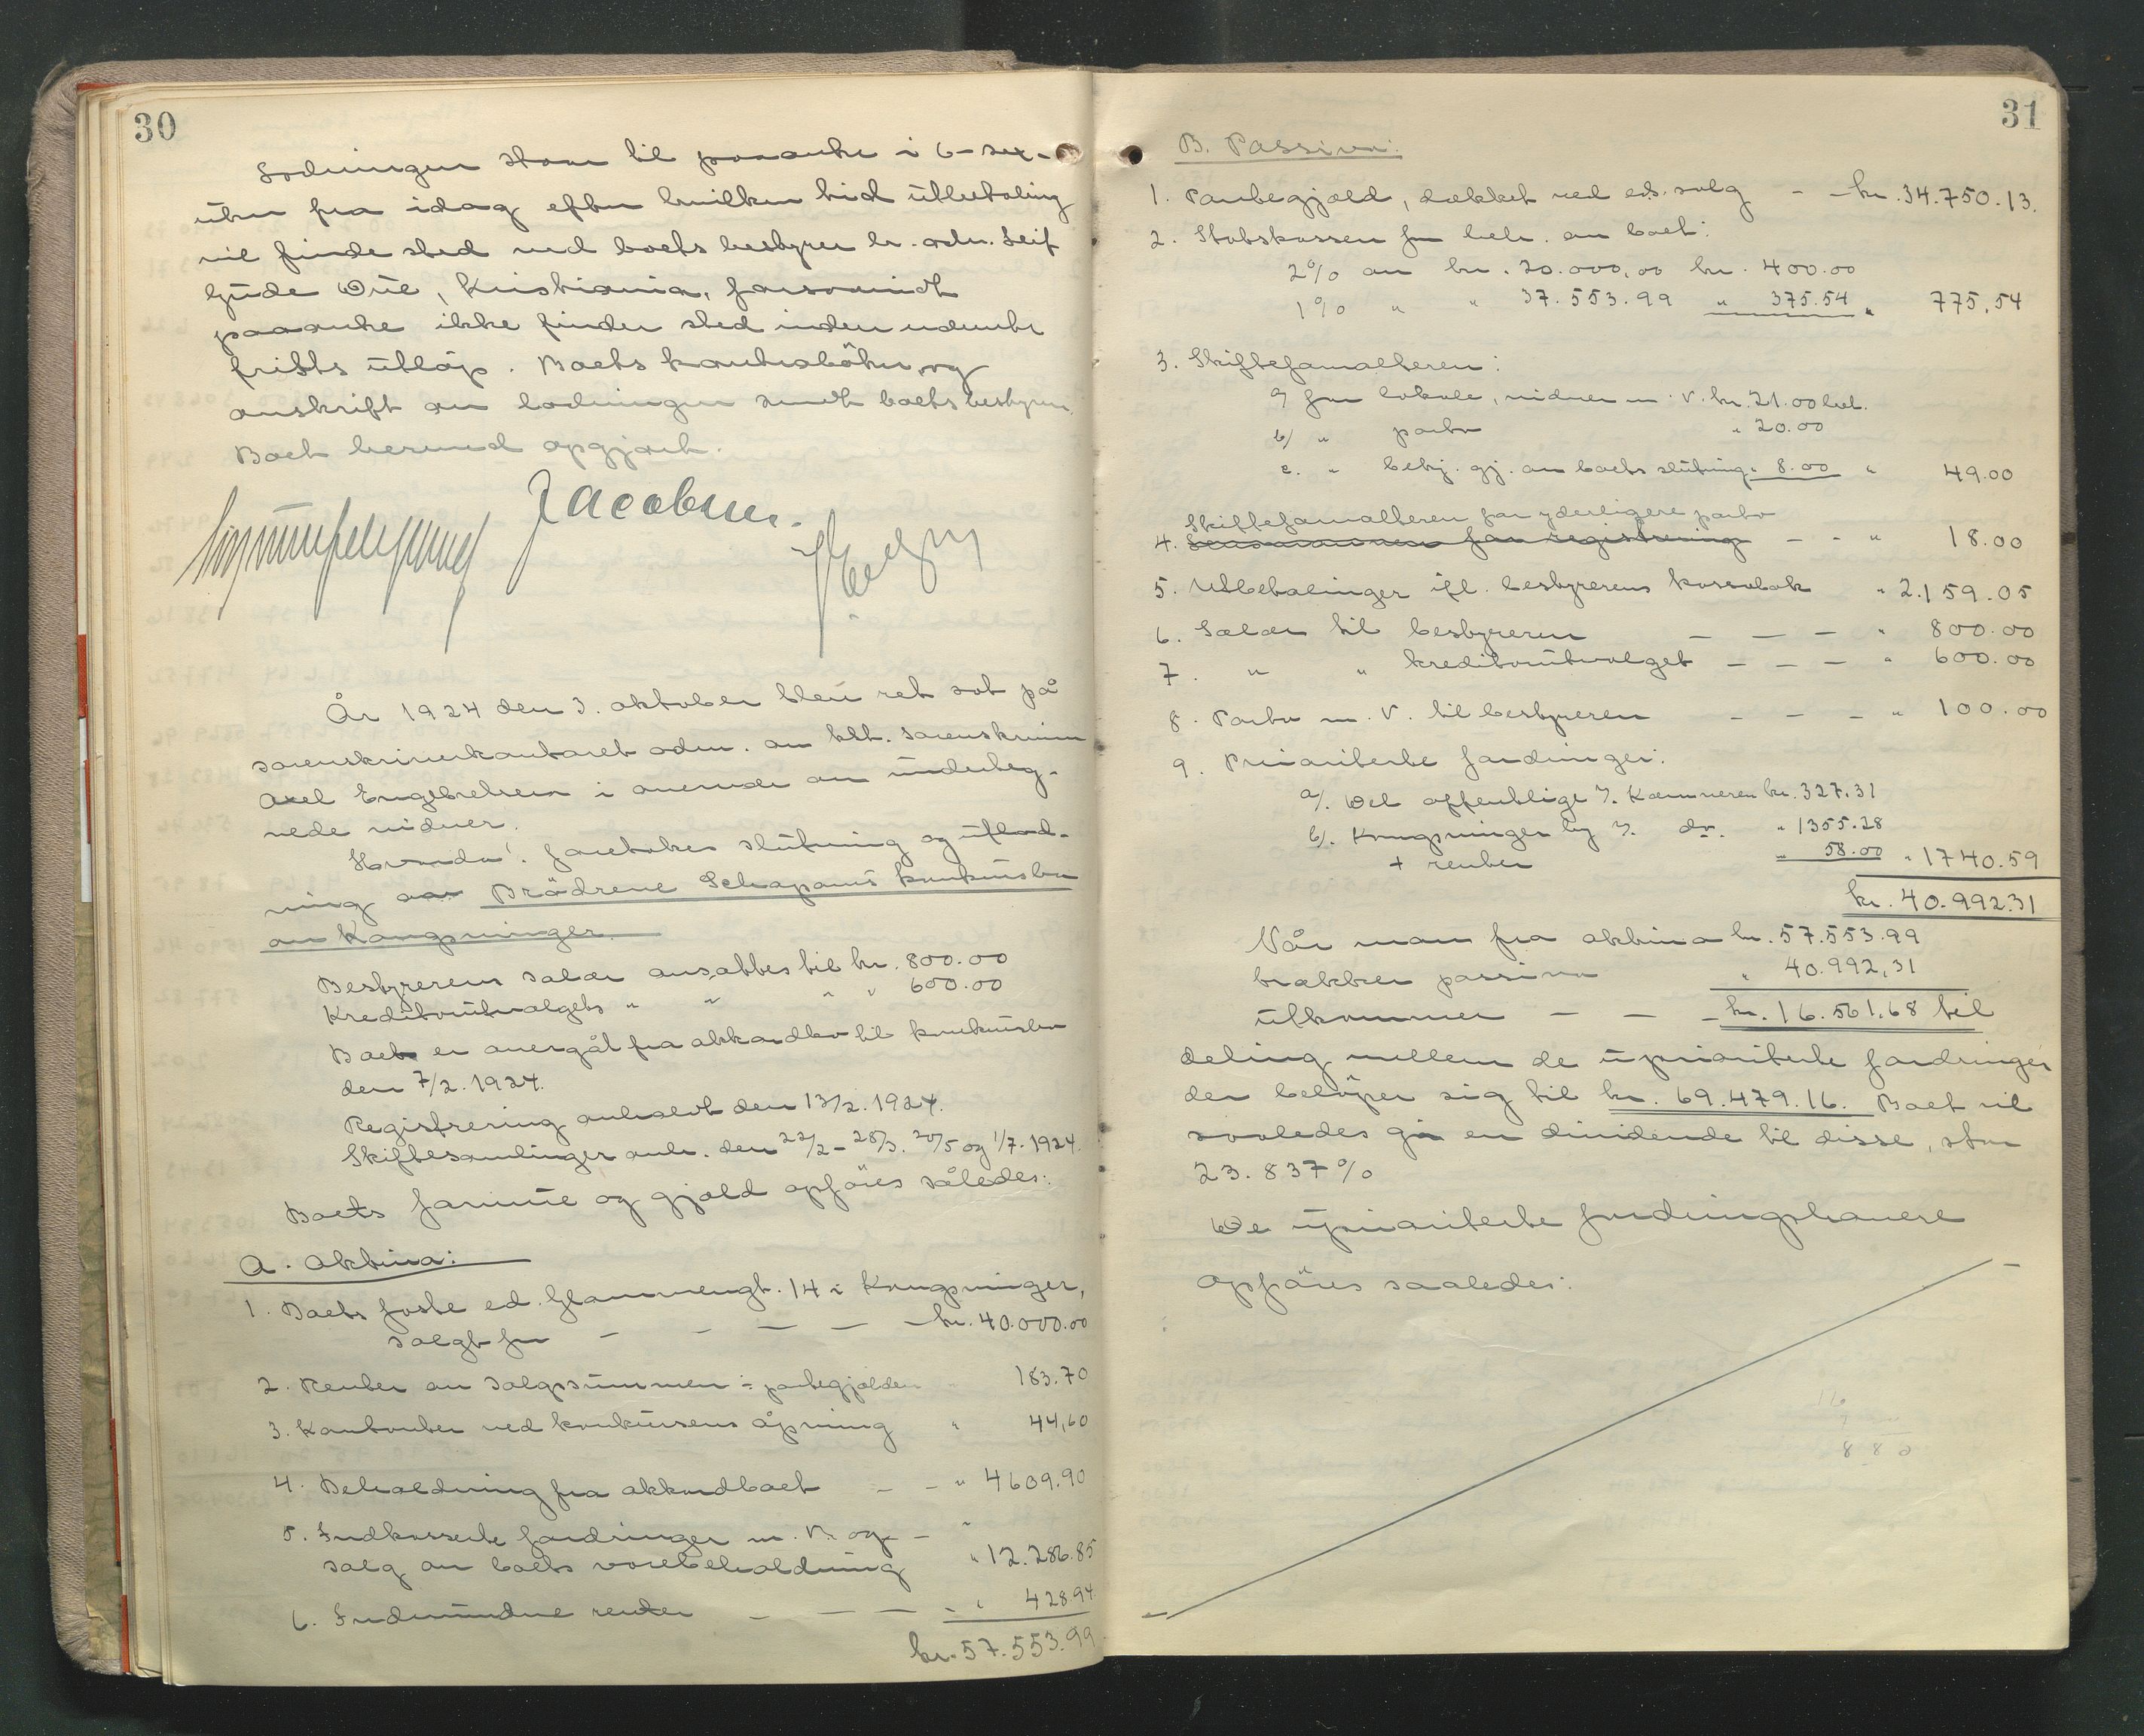 30
Lodningen staar til paaanke i 6 - sex -
uker fra idag efter hvilken tid utbetaling
vil finde sted ved boets bestyrer hr. adv. Leif
Gude Due, Kristiania, forsaavidt
paaanke ikke finder sted inden nævnte
frists utløp. Boets kontrabøker og
avskrift av lodningen sendt boets bestyrer.
Boet hermed opgjort.
Jacobsen.
År 1924 den 3. oktober blev ret sat på
sorenskriverkontoret adm. av kst. sorenskriver
Axel Engebretsen i overvær av underteg-
nede vidner.
Hvorda: foretokes slutning og utlod-
ning av Brødrene Schapows konkursbo
av Kongsvinger.
Bestyrerens salær ansattes til kr. 800.00
Kreditorutvalgets " " " " 600.00
Boet er overgåt fra akkordbo til konkursbo
den 7/2. 1924.
Registrering avholdt den 13/2. 1924.
Skiftesamlinger avh. den 22/2 - 28/3. 20/5 og 1/7. 1924.
Boets formue og gjæld opføres således:
A. Aktiva:
1. Boets faste ed. Glommengt. 14 i Kongsvinger,
solgt for - - - - - kr. 40.000.00
2. Renter av salgssummen ÷ pantegjælden " 183.70
3. Kontanter ved konkursens åpning " 44,60
4. Beholdning fra akkordboet - - " 4609.90
5. Indkasserte fordringer m. v. og - "
salg av boets varebeholdning " 12.286.85
6. Indvundne renter - - - - " 428.94
kr. 57.553.99
31
B. Passiva:
1. Pantegjæld, dækket ved ed. salg - - kr. 34.750.13.
2. Statskassen for beh. av boet:
2% av kr. 20.000,00 kr. 400.00
1% " " 37.553.99 " 375.54 " 775,54
3. Skifteforvalteren:
a) for lokale, vidner m. v. kr. 21.00
b/ " porto " 20.00
c. " bekj. gj. av boets slutning " 8.00 " 49.00
Skifteforvalteren for yderligere porto
4. for registrering - - " 18.00
5. Utbetalinger ifl. bestyrerens kassabok " 2.159.05
6. Salær til bestyreren - - - " 800.00
7. " " kreditorutvalget - - - " 600.00
8. Porto m. v. til bestyreren - - - " 100.00
9. Prioriterte fordringer:
a/. Det offentlige v. Kæmneren kr. 327.31
b/. Kongsvinger by v. do. " 1355.28
+ renter " 58.00 " 1740.59
kr. 40.992.31
Når man fra aktiva kr. 57.553.99
trækker passiva " 40.992,31
utkommer - - - kr. 16.561.68 til
deling mellem de uprioriterte fordringer
der beløper sig til kr. 69.479.16. Boet vil
saaledes gi en dividende til disse, stor
23.837%
De uprioriterte fordringshavere
opføres saaledes: